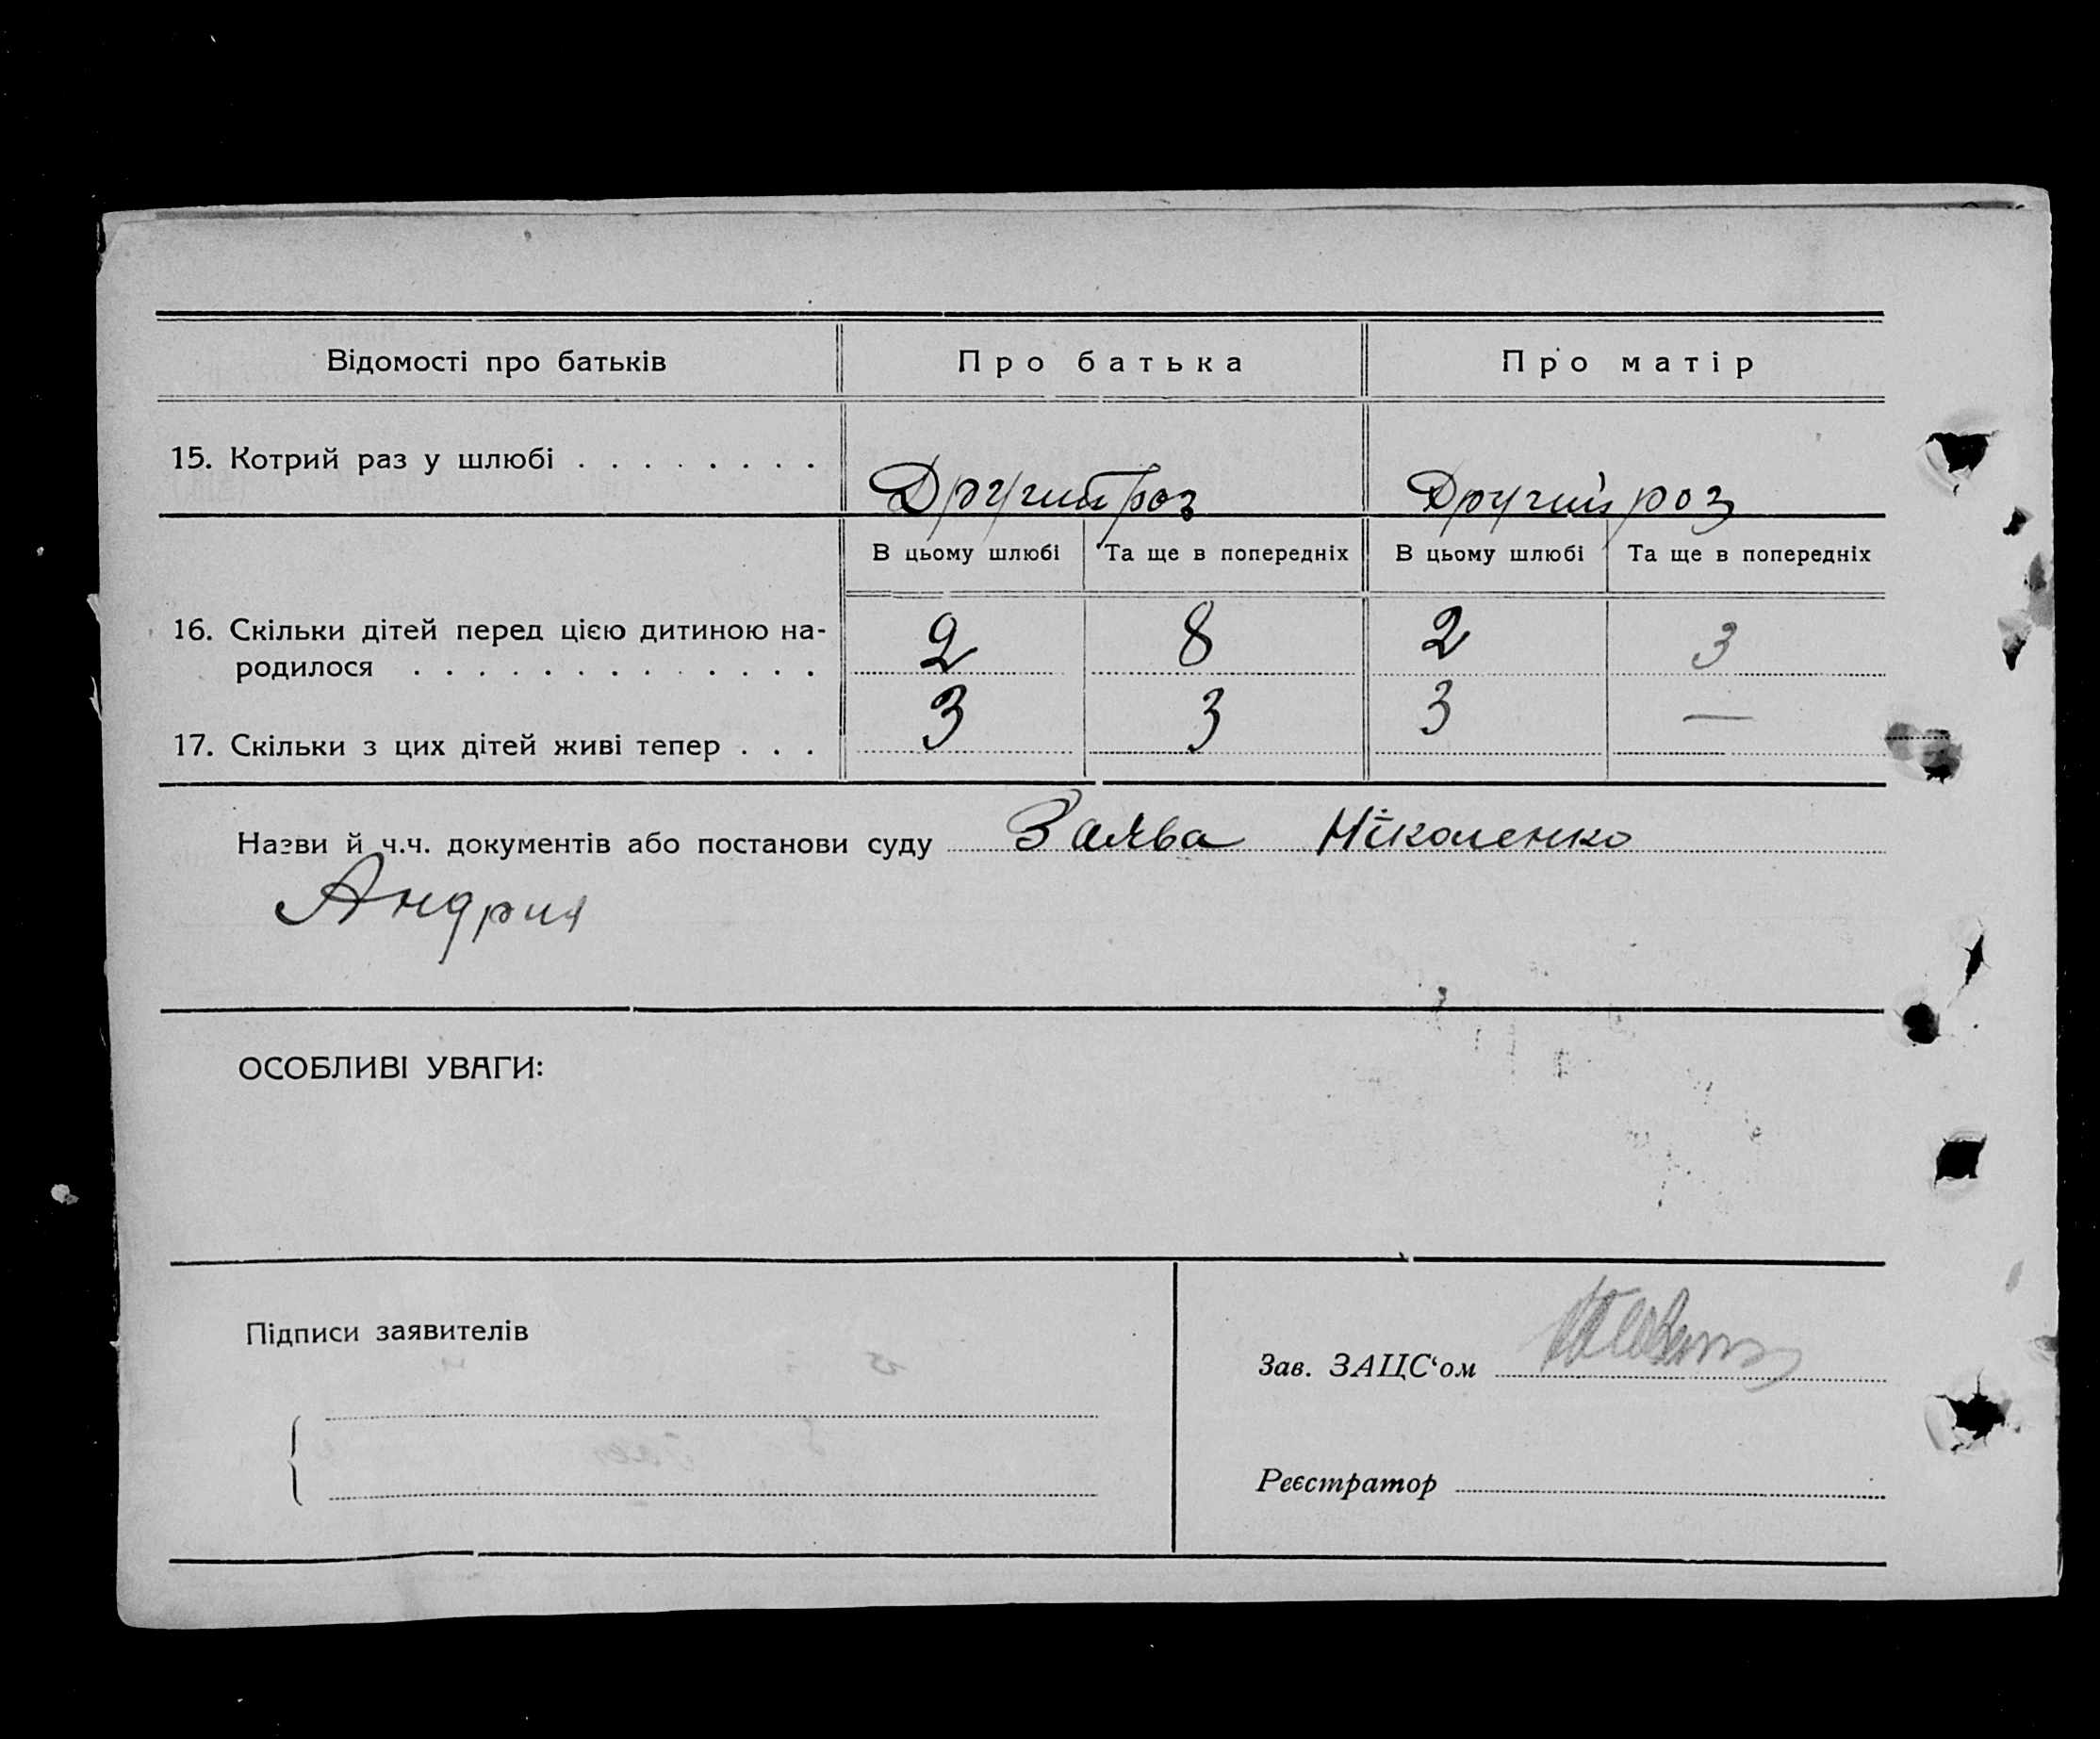 Відомості про батьків Про батька Про матір
15. Котрий раз у шлюбі . . . . . . . . Другий роз Другий роз
В цьому шлюбі Та ще в попередніх В цьому шлюбі Та ще в попередніх
16. Скільки дітей перед цією дитиною на-
родилося . . . . . . . . . . . . . 2 8 2 3
17. Скільки з цих дітей живі тепер . . . 3 3 3 —
Назви й ч.ч. документів або постанови суду Заява Ніколенко
Андрия
ОСОБЛИВІ УВАГИ:
Підписи заявителів
Зав. ЗАЦС‘ом
Реєстратор